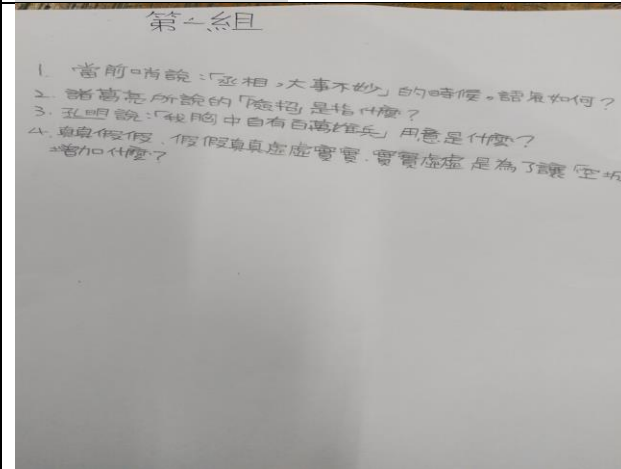 第一組
1. 當前哨說：「丞相，大事不妙」的時候。語氣如何？
2. 諸葛亮所說的「險招」是指什麼？
3. 孔明說：「我腦中自有百萬雄兵」用意是什麼？
4. 真真假假、假假真真虛虛實實、實實虛虛是為了讓「空城
增加什麼？